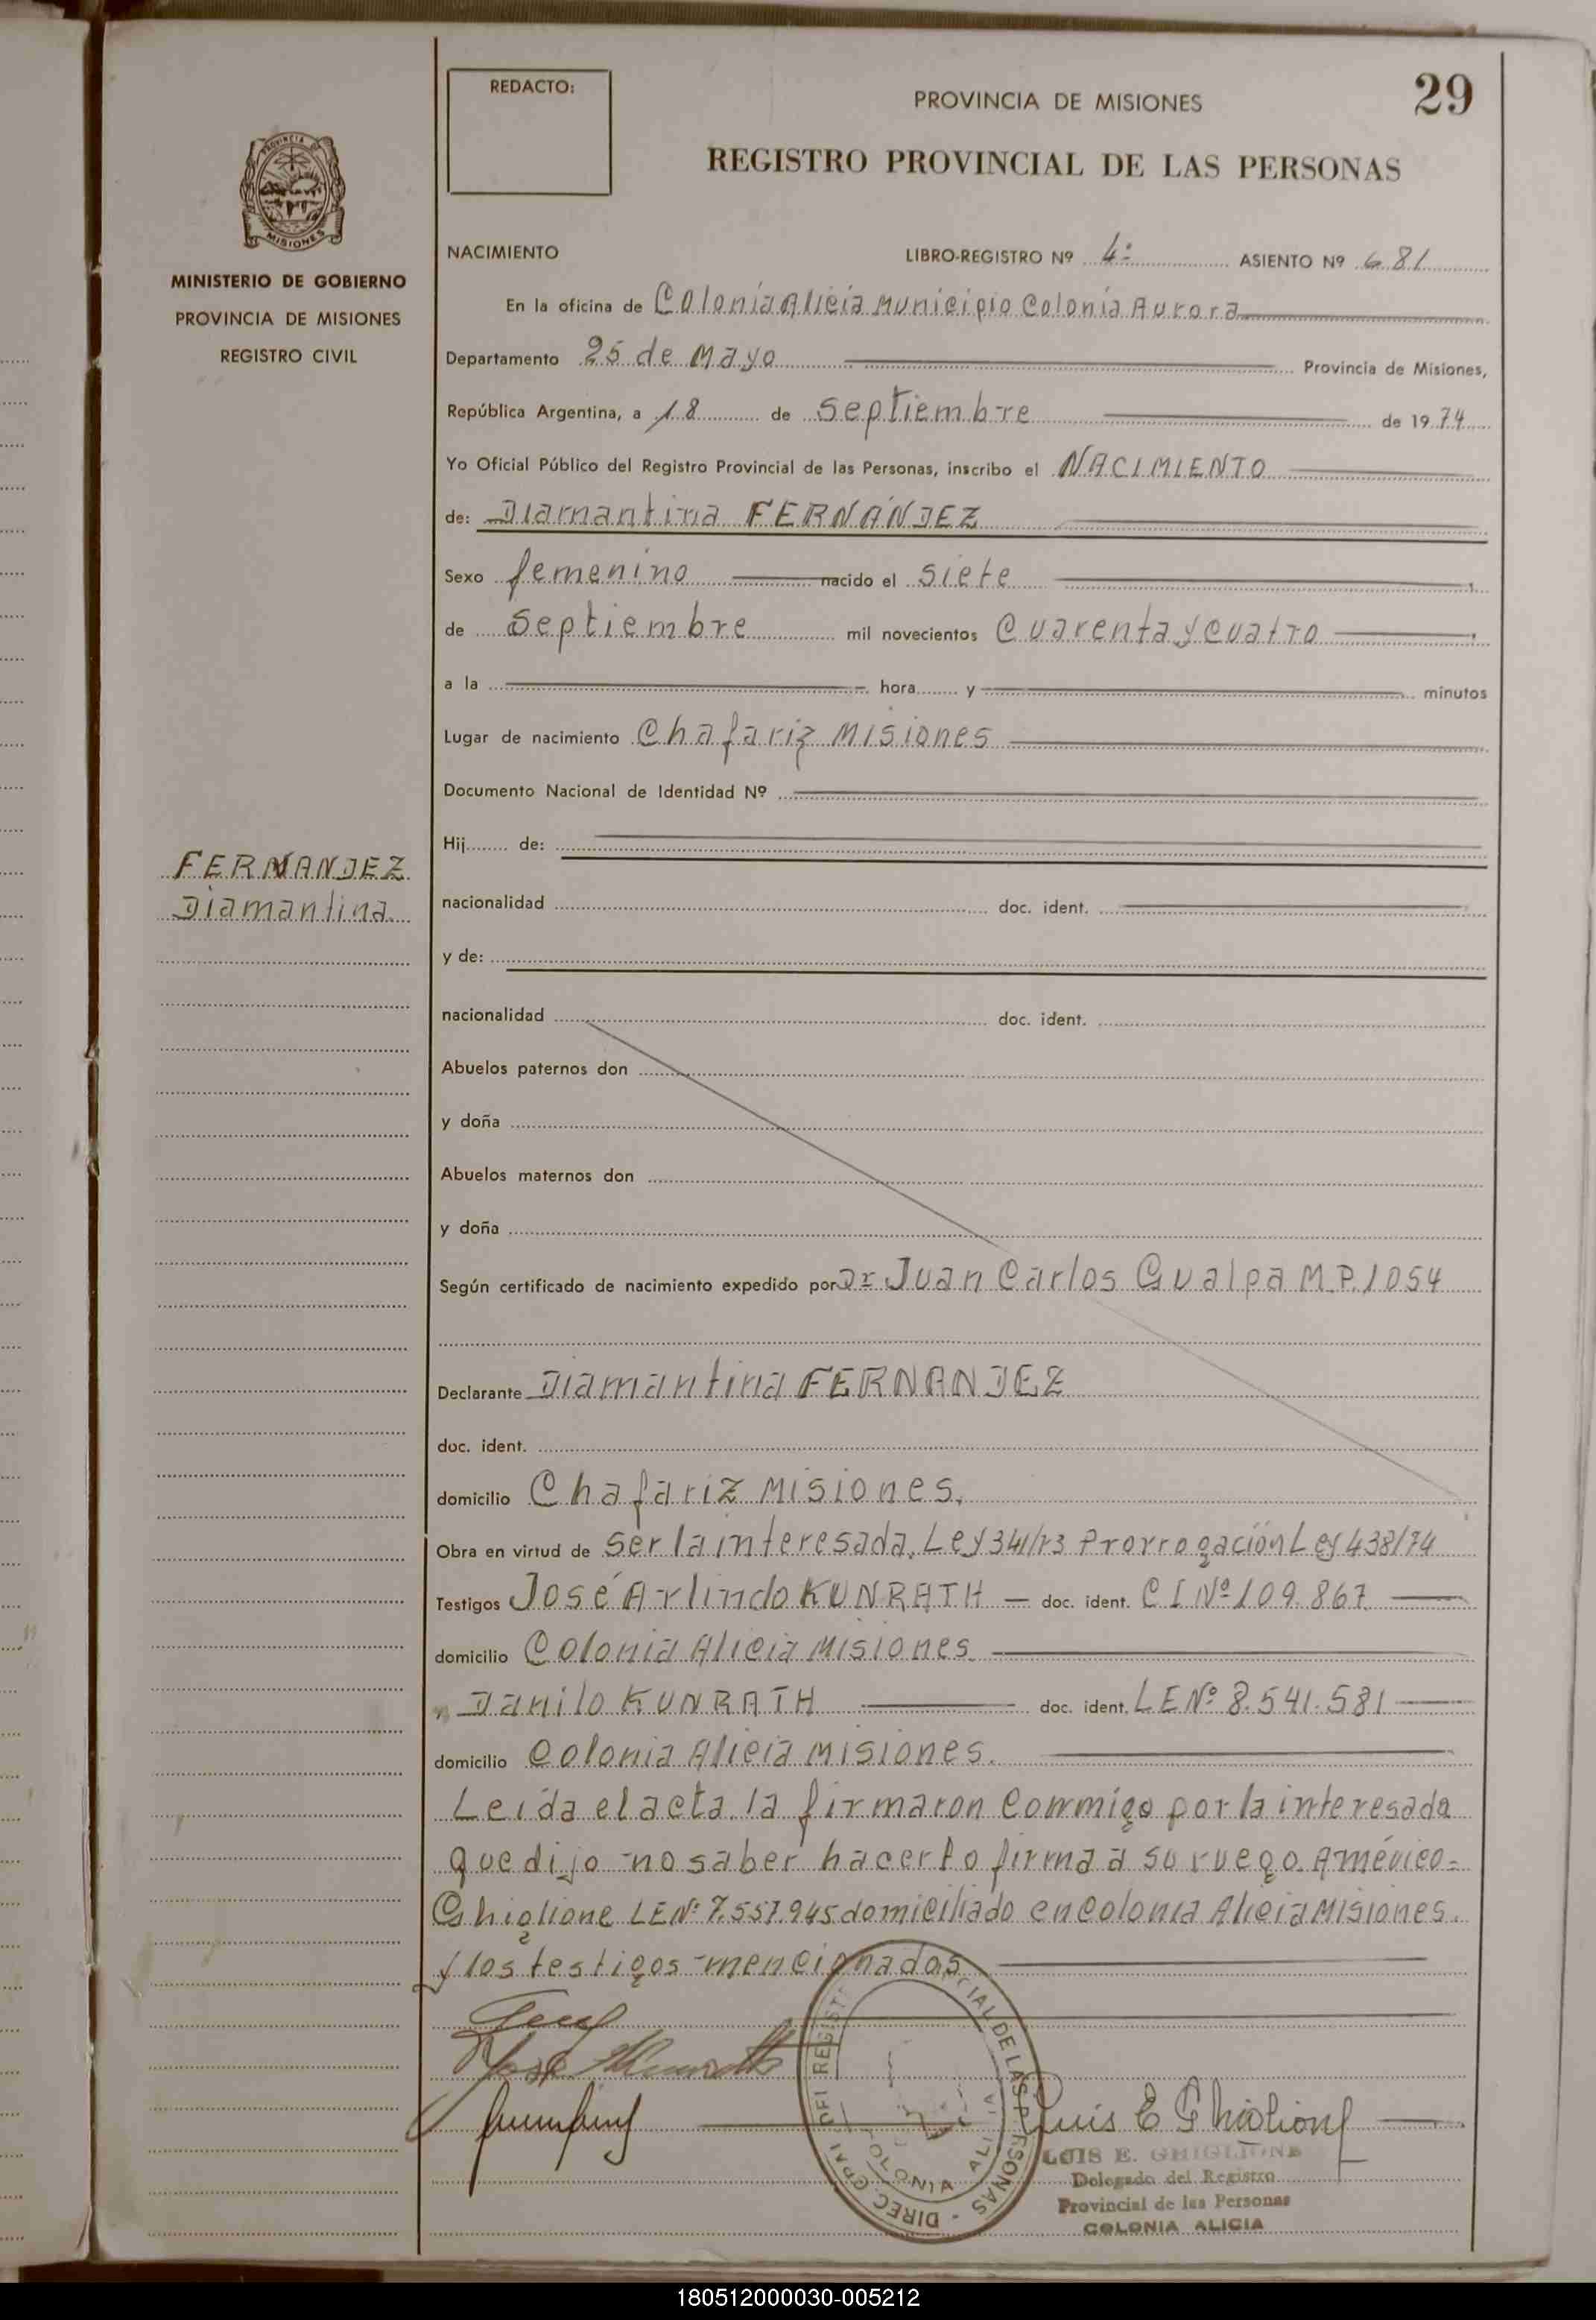 REDACTO:
PROVINCIA DE MISIONES
29
REGISTRO PROVINCIAL DE LAS PERSONAS
PROVINCIA DE
MISIONES
MINISTERIO DE GOBIERNO
PROVINCIA DE MISIONES
REGISTRO CIVIL
NACIMIENTO LIBRO-REGISTRO Nº 4º ASIENTO Nº 681
En la oficina de Colonia Alicia Municipio Colonia Aurora
Departamento 25 de Mayo Provincia de Misiones,
República Argentina, a 18 de septiembre de 1974
Yo Oficial Público del Registro Provincial de las Personas, inscribo el NACIMIENTO
de: Diamantina FERNÁNDEZ
Sexo femenino nacido el siete
de septiembre mil novecientos Cuarenta y cuatro
a la hora y minutos
Lugar de nacimiento Chafariz Misiones
Documento Nacional de Identidad Nº
Hij de:
FERNANDEZ
Diamantina
nacionalidad doc. ident.
y de:
nacionalidad doc. ident.
Abuelos paternos don
y doña
Abuelos maternos don
y doña
Según certificado de nacimiento expedido por Dr Juan Carlos Gualpa M.P. 1054
Declarante Diamantina FERNANDEZ
doc. ident.
domicilio Chafariz Misiones.
Obra en virtud de ser la interesada. Ley 341/73 Prorrogación Ley 438/74
Testigos José Arlindo KUNRATH — doc. ident. C I Nº 109.867
domicilio Colonia Alicia Misiones
Danilo KUNRATH doc. ident. LE Nº 8.541.581
domicilio Colonia Alicia Misiones.
Leída el acta la firmaron conmigo por la interesada
que dijo no saber hacerlo firma a su ruego. Américo=
Ghiglione LE Nº 7.557.945 domiciliado en Colonia Alicia Misiones.
y los testigos mencionados
José Kunrath
Luis E Ghiglione
LUIS E. GHIGLIONE
Delegado del Registro
Provincial de las Personas
COLONIA ALICIA
DIREC. GRAL. DEL REGISTRO PROVINCIAL DE LAS PERSONAS
COLONIA ALICIA
180512000030-005212